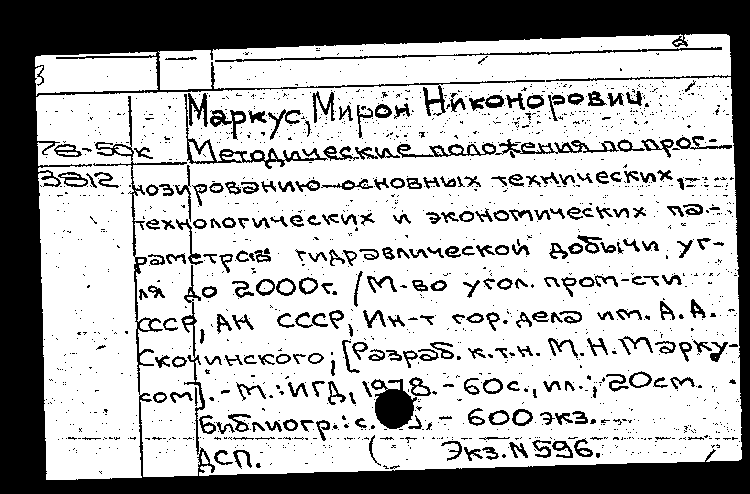 Маркус, Мирон Никонорович.
78-50к Методические положения по прог-
3812 нозированию основных технических,
технологических и экономических па-
раметров гидравлической добычи уг-
ля до 2000г. /М-во угол. пром-сти
СССР, АН СССР, Ин-т гор. дела им. А.А.
Скочинского; [Разраб. к.т.н. М.Н.Марку-
сом]. - М.: ИГД, 1978. - 60с., ил.; 20см.
Библиогр.: с. - 600 экз.
ДСП. Экз. N 596.